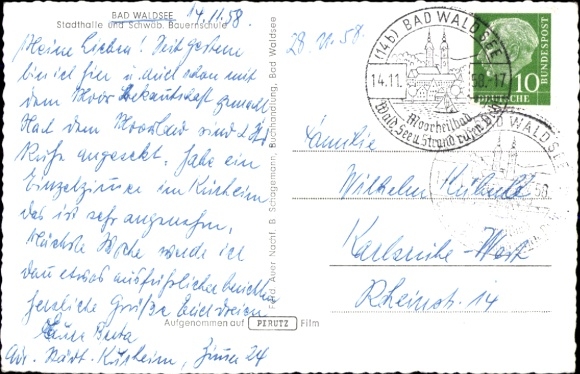 BAD WALDSEE 14.11.58.
Stadthalle und Schwäb. Bauernschule
Meine Lieben! Seit gestern
bin ich hier u. auch schon mit
dem Moor Bekanntschaft gemacht
Nach dem Moorbad sind 2 Std
Ruhe angesetzt. Habe ein
Einzelzimmer im Kurheim
das ist sehr angenehm.
Nächste Woche werde ich
dann etwas ausführlicher berichten
herzliche Grüße Euch dreien
Eure Berta
Adr. Städt. Kurheim, Zimmer 24
Feld. Auer Nachf. B. Schagemann, Buchhandlung, Bad Waldsee
Aufgenommen auf PERUTZ Film
28 11. 58.
(14b) BAD WALDSEE
14.11. 58.-17
Moorheilbad
Wald, See u. Strand
DEUTSCHE BUNDESPOST
10
BAD WALDSEE
58
Familie
Wilhelm
Karlsruhe-West
Rheinstr. 14